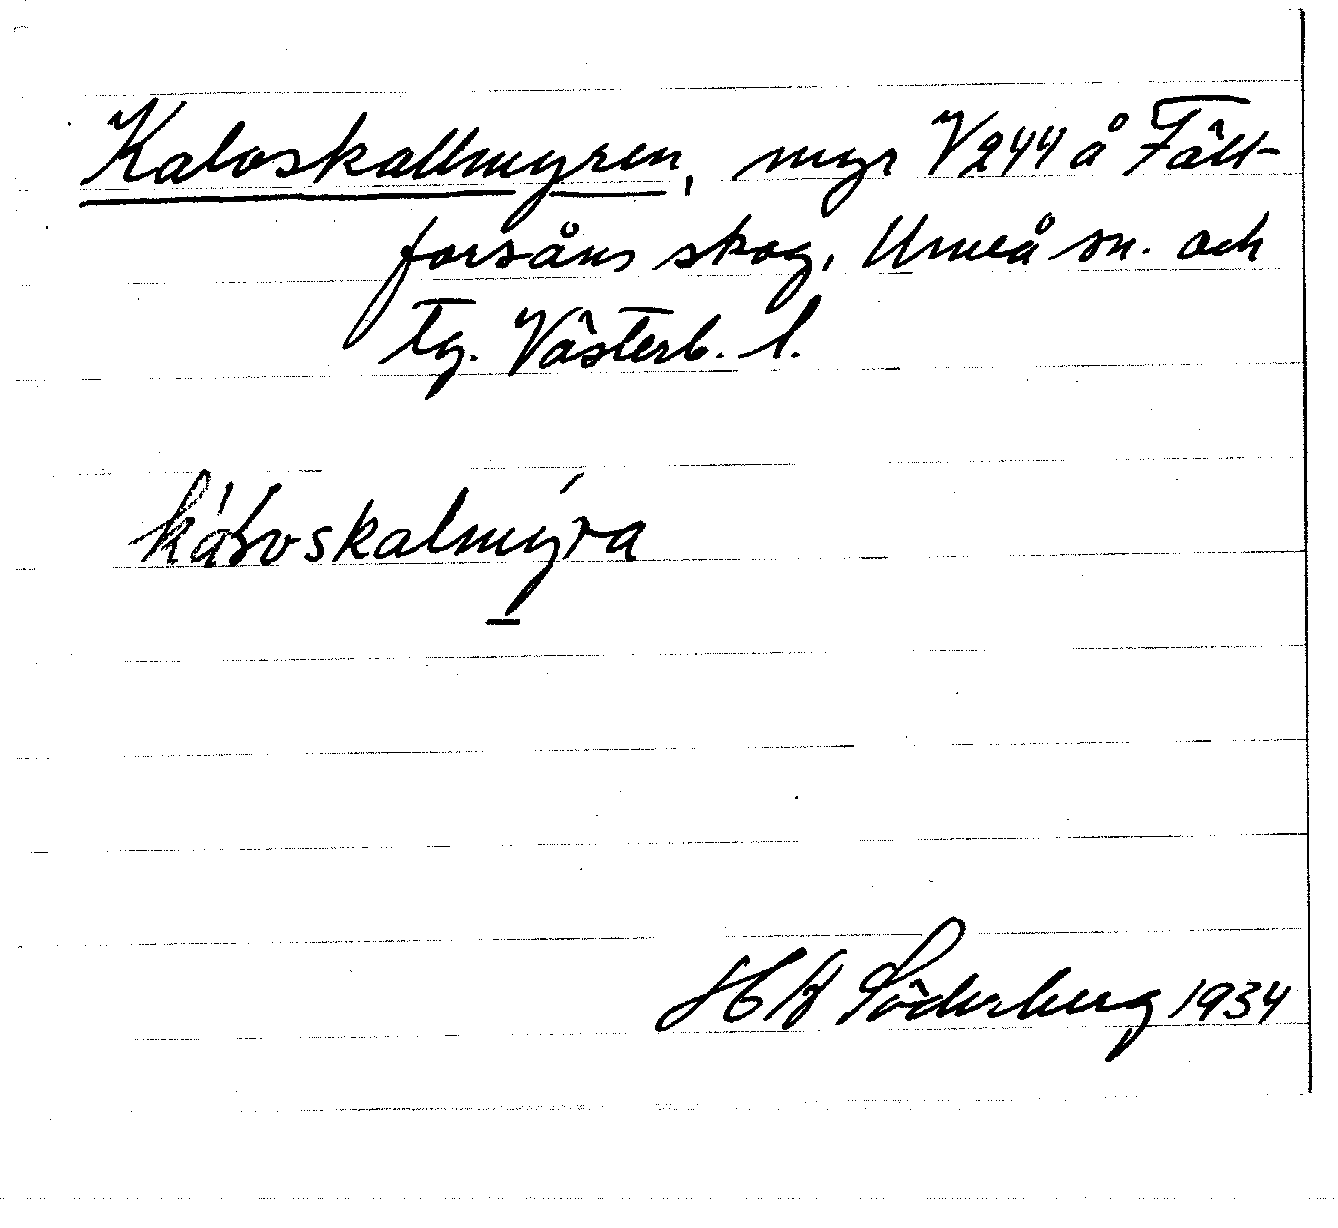 Kalvskallmyren, myr V244 å Fält-
forsåns skog, Umeå sn. och
tg. Västerb. l.
kálvskalmýra
H W Söderberg 1934